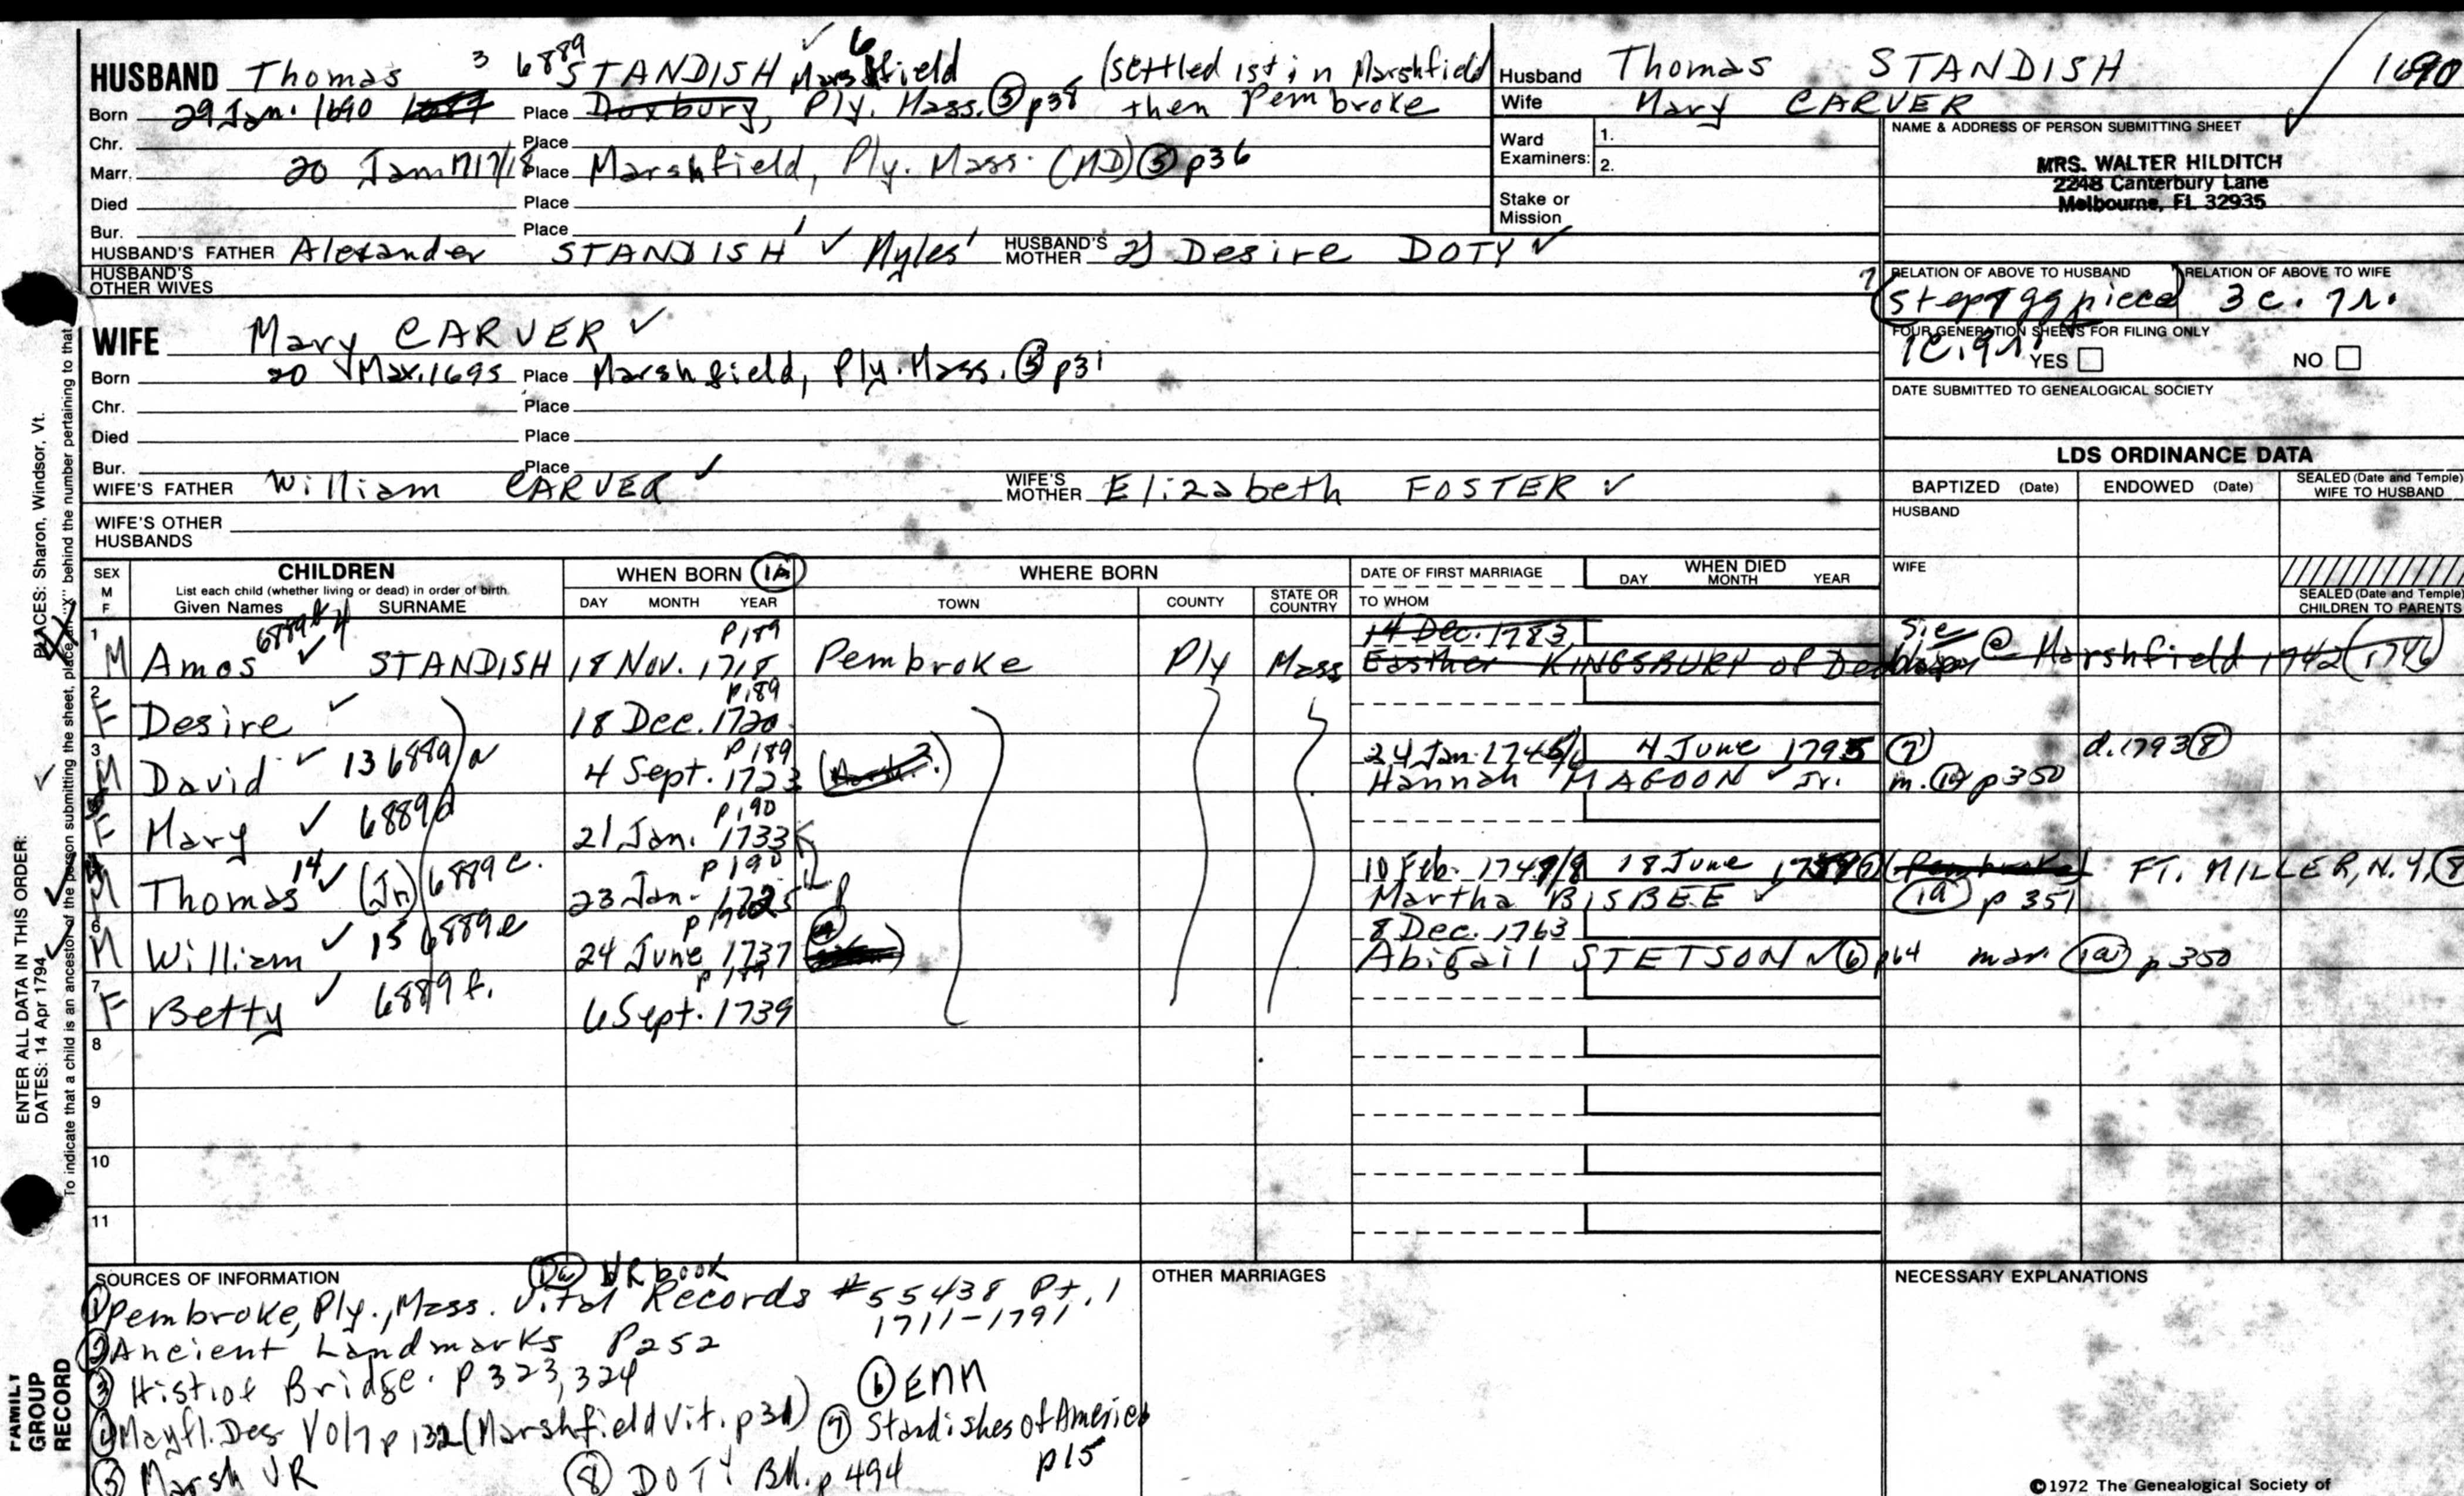 HUSBAND Thomas 3 6889 STANDISH Marshfield (settled 1st in Marshfield
Born 29 Jan. 1690 1689 Place Duxbury, Ply. Mass. (5) p38 then Pembroke
Chr. Place
Marr. 20 Jan 1717/18 Place Marshfield, Ply. Mass. (MD) (5) p36
Died Place
Bur. Place
HUSBAND'S FATHER Alexander STANDISH ✓ Myles' HUSBAND'S MOTHER 2) Desire DOTY ✓
HUSBAND'S OTHER WIVES
Husband Thomas STANDISH 1690
Wife Mary CARVER
Ward Examiners: 1.
2.
Stake or Mission
NAME & ADDRESS OF PERSON SUBMITTING SHEET
MRS. WALTER HILDITCH
2248 Canterbury Lane
Melbourne, FL 32935
RELATION OF ABOVE TO HUSBAND RELATION OF ABOVE TO WIFE
step 7 gg niece 3c. 7r.
FOUR GENERATION SHEETS FOR FILING ONLY
1c. 9r. YES NO
DATE SUBMITTED TO GENEALOGICAL SOCIETY
WIFE Mary CARVER ✓
Born 20 Mar. 1695 Place Marshfield, Ply. Mass. (5) p31
Chr. Place
Died Place
Bur. Place
WIFE'S FATHER William CARVER ✓ WIFE'S MOTHER Elizabeth FOSTER ✓
WIFE'S OTHER HUSBANDS
LDS ORDINANCE DATA
BAPTIZED (Date) ENDOWED (Date) SEALED (Date and Temple) WIFE TO HUSBAND
HUSBAND
WIFE
SEALED (Date and Temple) CHILDREN TO PARENTS
SEX M F CHILDREN WHEN BORN (1A) WHERE BORN DATE OF FIRST MARRIAGE WHEN DIED
List each child (whether living or dead) in order of birth.
Given Names SURNAME DAY MONTH YEAR TOWN COUNTY STATE OR COUNTRY TO WHOM DAY MONTH YEAR
p189 14 Dec. 1783, sic
1 M Amos ✓ STANDISH 18 Nov. 1718 Pembroke Ply Mass Easther KINGSBURY of @ Marshfield 1742 (1746)
p189
2 F Desire ✓ 18 Dec. 1720
p189 24 Jan. 1745/6 4 June 1795 (7) d. 1793 (8)
3 M David ✓ 13 6889 a 4 Sept. 1723 Hannah MAGOON ✓ Jr. m. (1a) p350
p190
5 F Mary ✓ 6889d 21 Jan. 1733
p190 10 Feb. 1748/9 18 June FT. MILLER, N.Y. (8)
4 M Thomas 14 ✓ (Jr) 6889c. 23 Jan. 1725 Martha BISBEE ✓ (1a) p 351
8 Dec. 1763
6 M William ✓ 15 6889e 24 June 1737 Abigail STETSON ✓ (6) p64 mar. (1a) p 350
p189
7 F Betty ✓ 6889f. 6 Sept. 1739
8
9
10
11
SOURCES OF INFORMATION (1a) VR book
(1) Pembroke, Ply., Mass. Vital Records #55438 Pt. 1
1711-1791
(2) Ancient Landmarks P252
(3) Hist. of Bridge. p 323, 324
(6) ENN
(4) Mayfl. Des Vol 7 p 132 (Marshfield Vit. p31) (7) Standishes of America
p15
(5) Marsh VR (8) DOTY Bk. p 494
OTHER MARRIAGES
NECESSARY EXPLANATIONS
©1972 The Genealogical Society of
ENTER ALL DATA IN THIS ORDER:
DATES: 14 Apr 1794 PLACES: Sharon, Windsor, Vt.
To indicate that a child is an ancestor of the person submitting the sheet, place an "X" behind the number pertaining to that
FAMILY GROUP RECORD